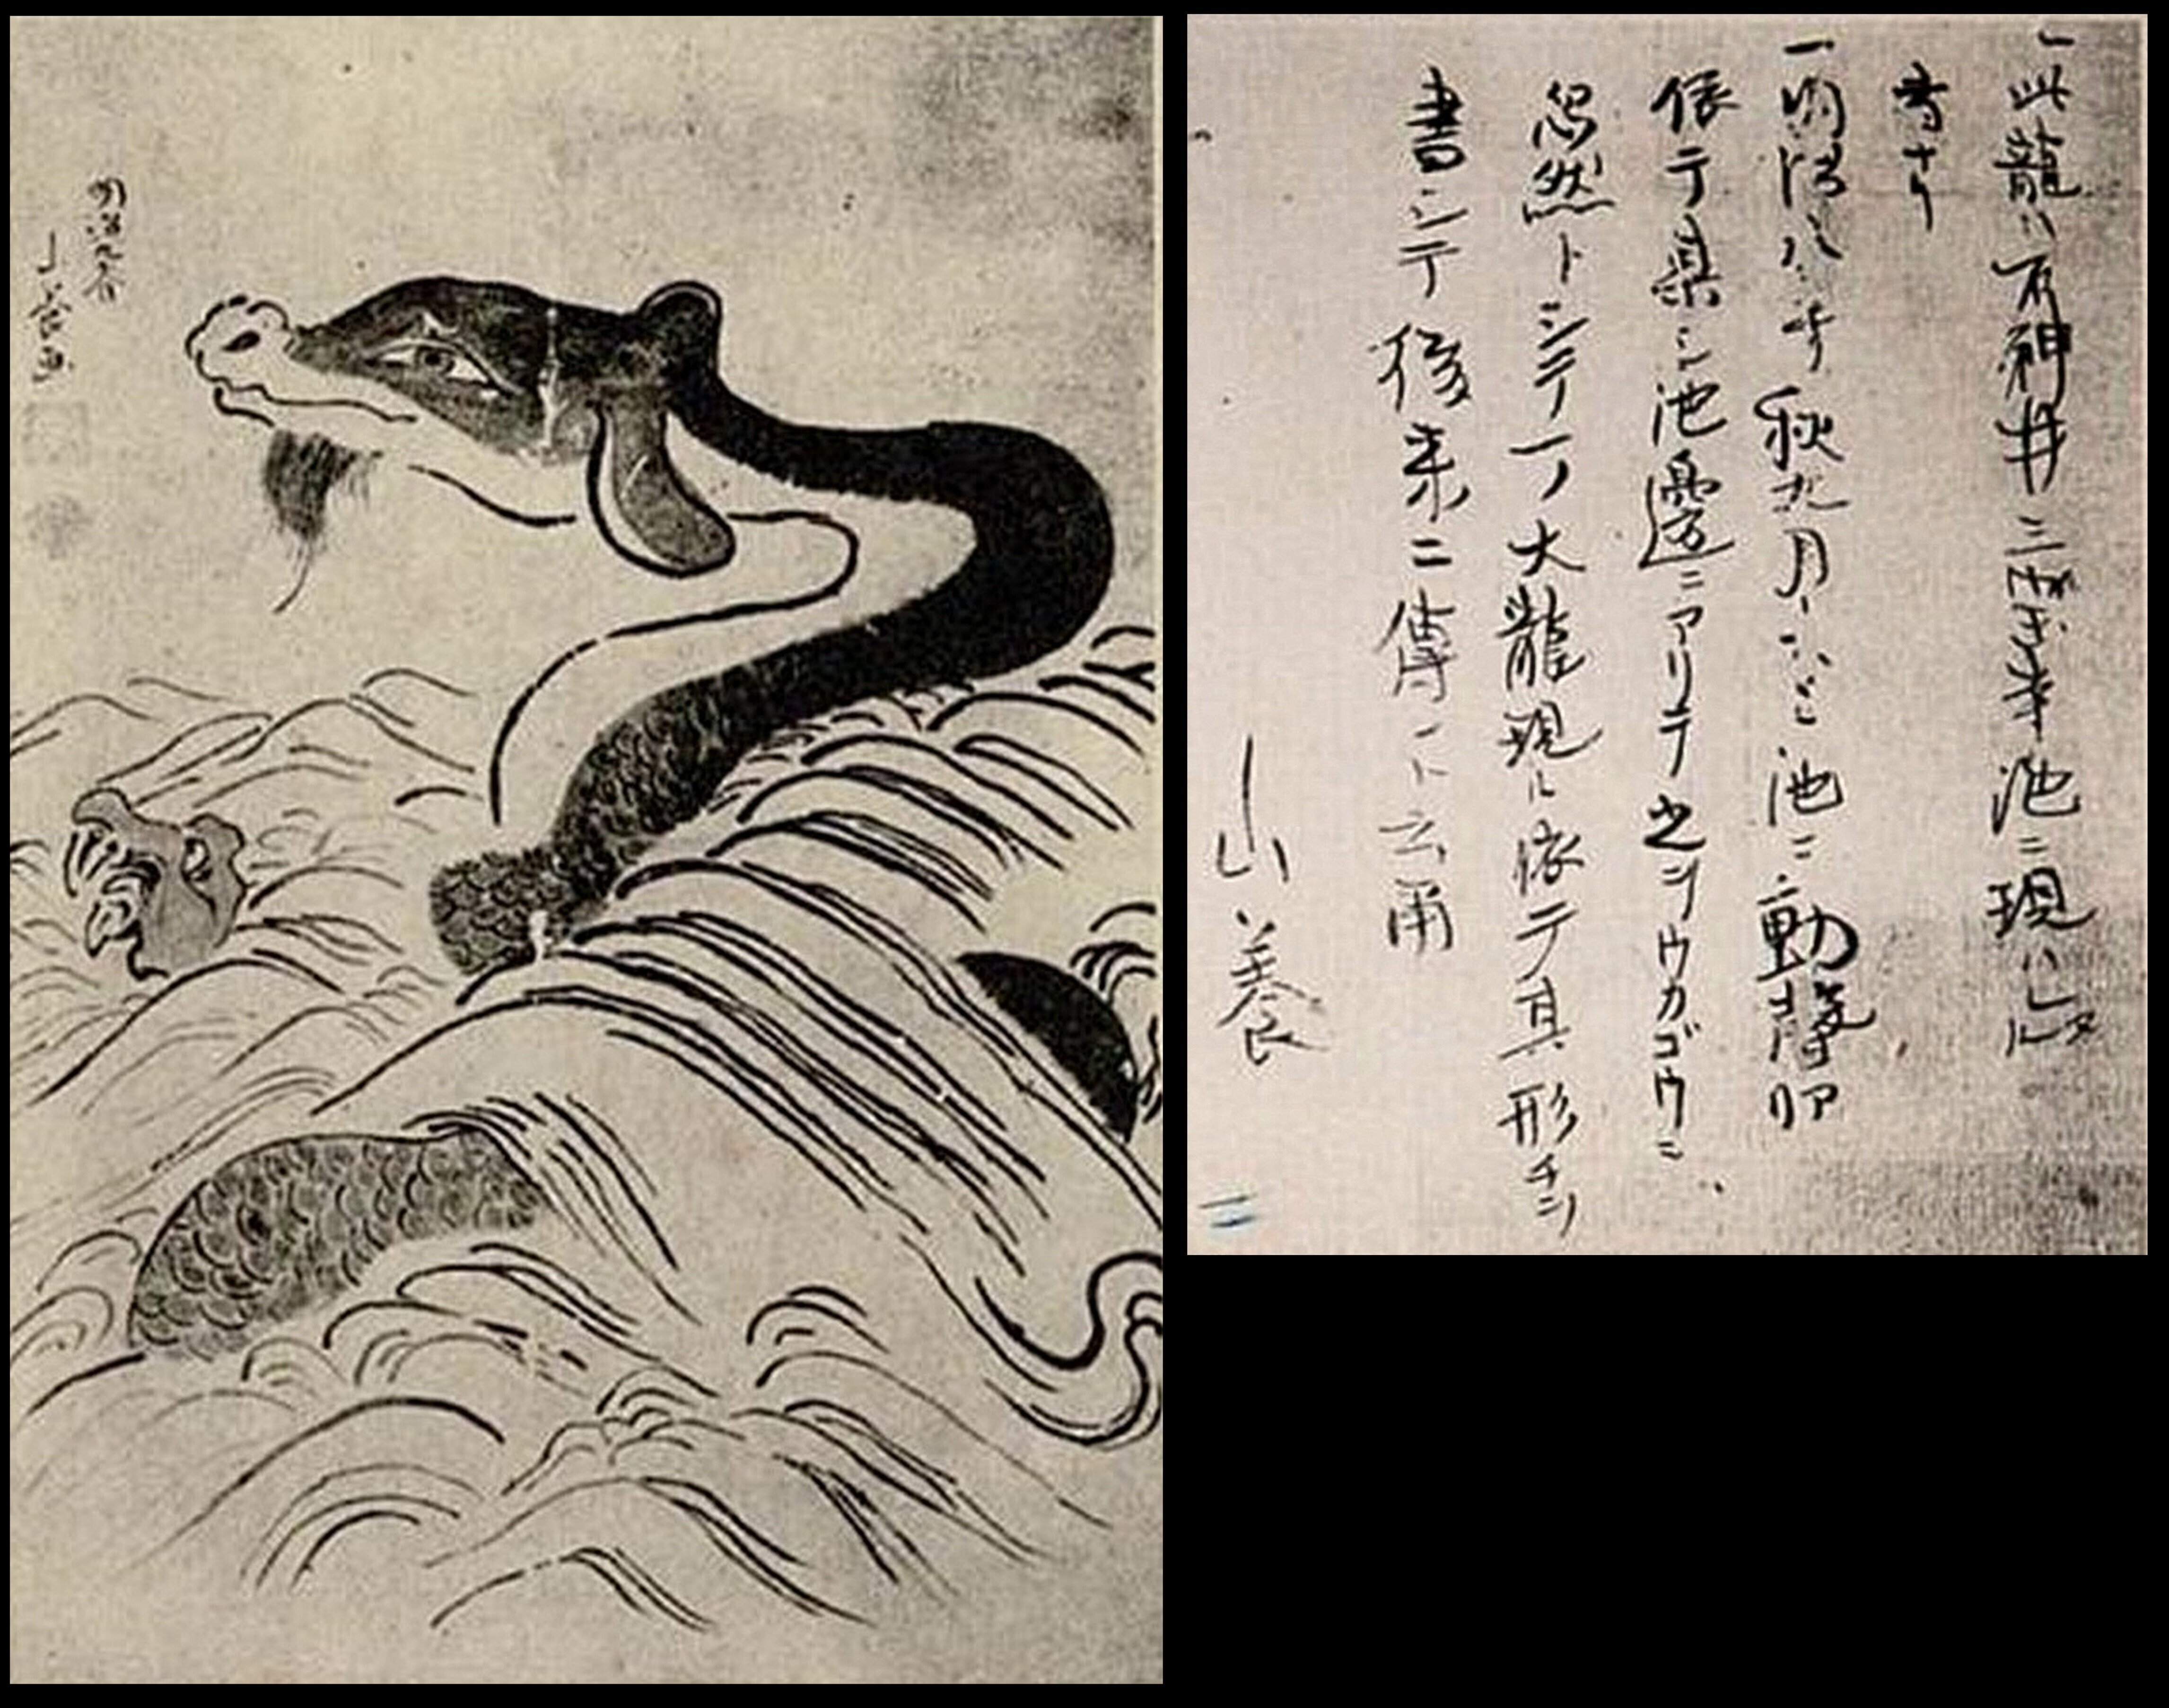 一此龍ハ石神井三宝寺池ニ現ハレタル
者ナリ
一明治八年秋九月 池ニ動揺アリ
依テ具シ池邊ニアリテ之ヲウカゴウニ
忽然トシテ一ノ大龍現ル依テ其形チヲ
書シテ後来ニ傳ント云爾
山養
明治九春
山養画